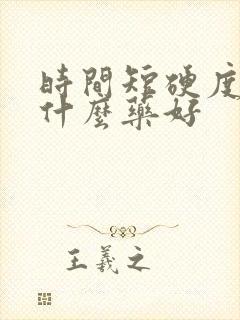 時間短硬度
什麼藥好
王羲之